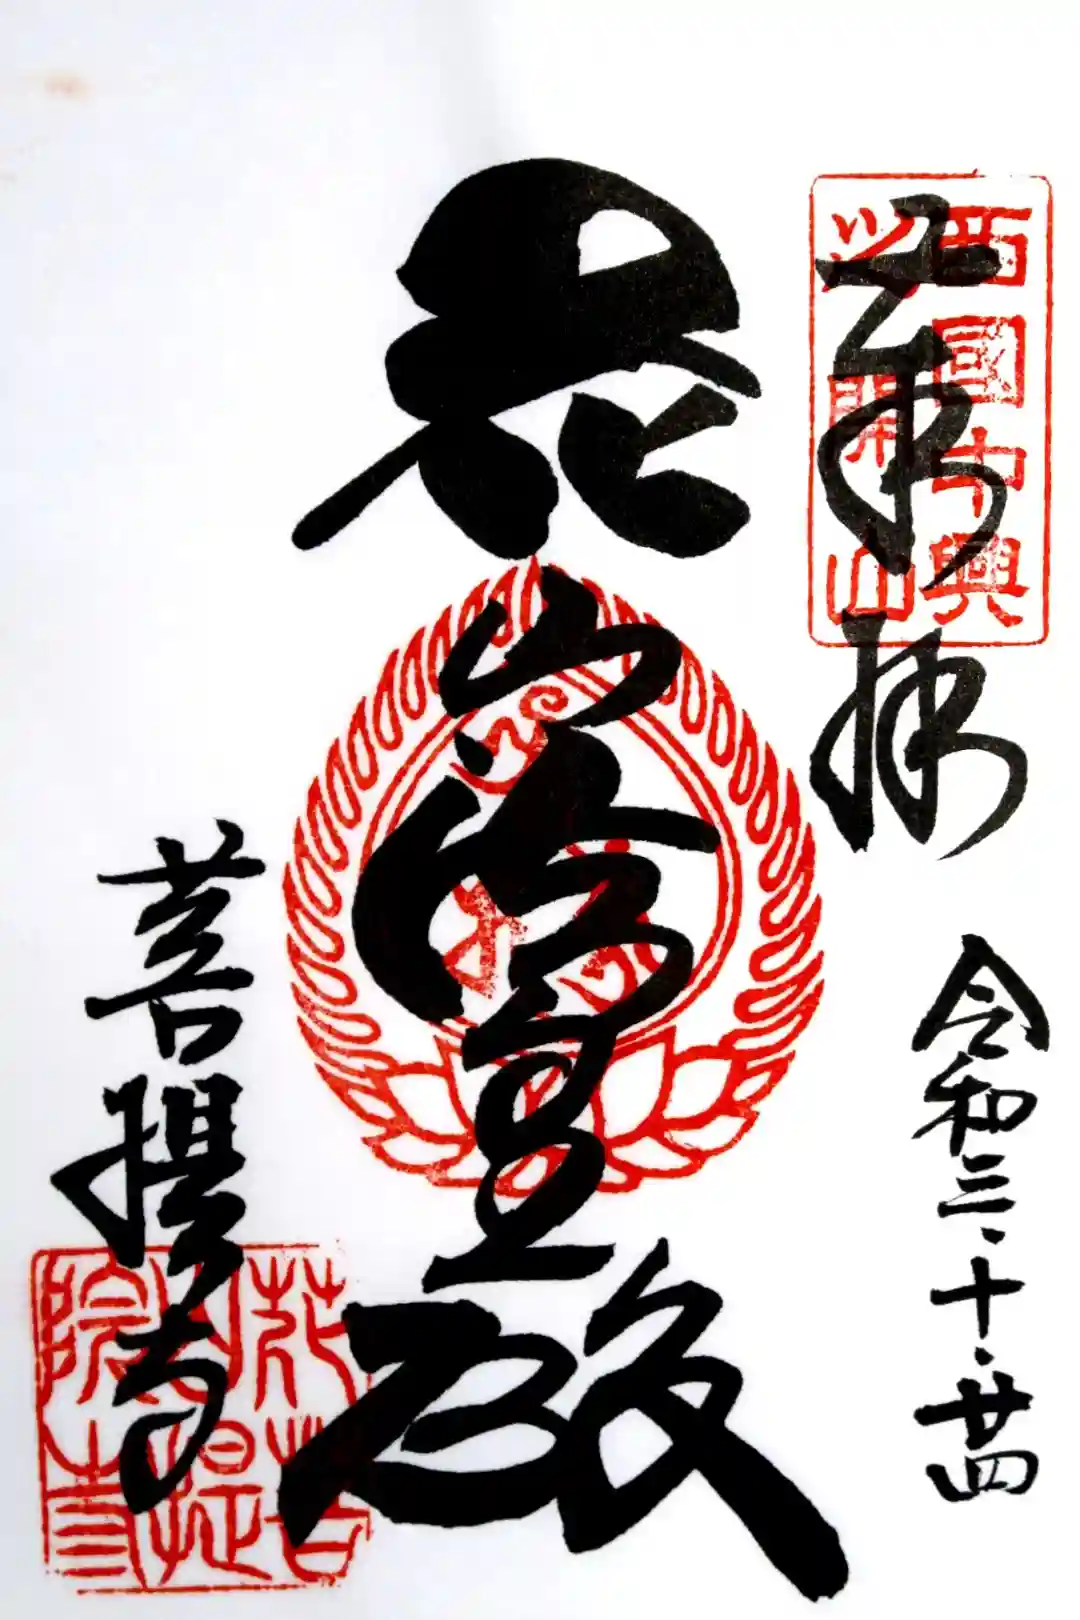 奉拝
西國中興
開山
令和三・十・廿四
花山法皇殿
菩提寺
花山院菩提寺